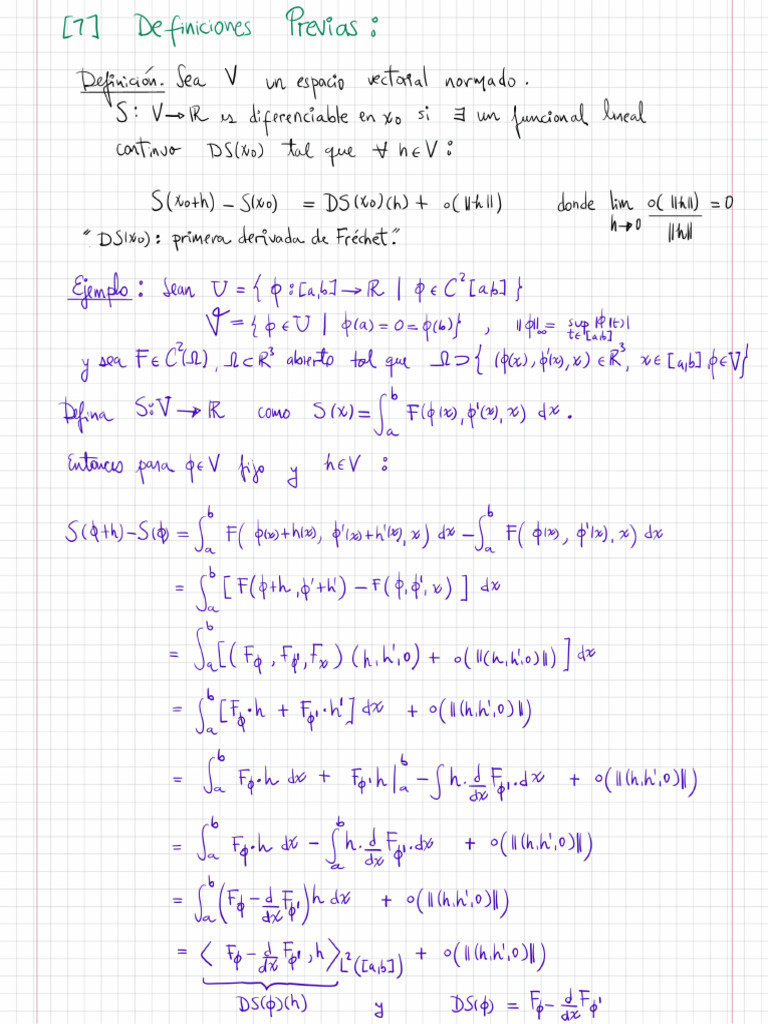 [7] Definiciones Previas:
Definición. Sea V un espacio vectorial normado.
S: V→ℝ es diferenciable en x₀ si ∃ un funcional lineal
continuo DS(x₀) tal que ∀ h∈V:
S(x₀+h) - S(x₀) = DS(x₀)(h) + o(‖h‖) donde lim_{h→0} o(‖h‖)/‖h‖ = 0
"DS(x₀): primera derivada de Fréchet."
Ejemplo: Sean U = {φ:[a,b]→ℝ | φ∈C²[a,b]}
V = {φ∈U | φ(a)=0=φ(b)}, ‖φ‖_∞ = sup_{t∈[a,b]} |φ(t)|
y sea F∈C²(Ω), Ω⊂ℝ³ abierto tal que Ω⊃{(φ(x),φ'(x),x)∈ℝ³, x∈[a,b], φ∈V}
Defina S:V→ℝ como S(x) = ∫_a^b F(φ(x),φ'(x),x) dx.
Entonces para φ∈V fijo y h∈V:
S(φ+h)-S(φ) = ∫_a^b F(φ(x)+h(x), φ'(x)+h'(x), x) dx - ∫_a^b F(φ(x), φ'(x), x) dx
= ∫_a^b [F(φ+h, φ'+h') - F(φ,φ',x)] dx
= ∫_a^b [(F_φ, F_φ', F_x)(h,h',0) + o(‖(h,h',0)‖)] dx
= ∫_a^b [F_φ·h + F_φ'·h'] dx + o(‖(h,h',0)‖)
= ∫_a^b F_φ·h dx + F_φ'h|_a^b - ∫h·d/dx F_φ'·dx + o(‖(h,h',0)‖)
= ∫_a^b F_φ·h dx - ∫_a^b h·d/dx F_φ'·dx + o(‖(h,h',0)‖)
= ∫_a^b (F_φ - d/dx F_φ') h dx + o(‖(h,h',0)‖)
= ⟨F_φ - d/dx F_φ', h⟩_{L²([a,b])} + o(‖(h,h',0)‖)
DS(φ)(h) y DS(φ) = F_φ - d/dx F_φ'